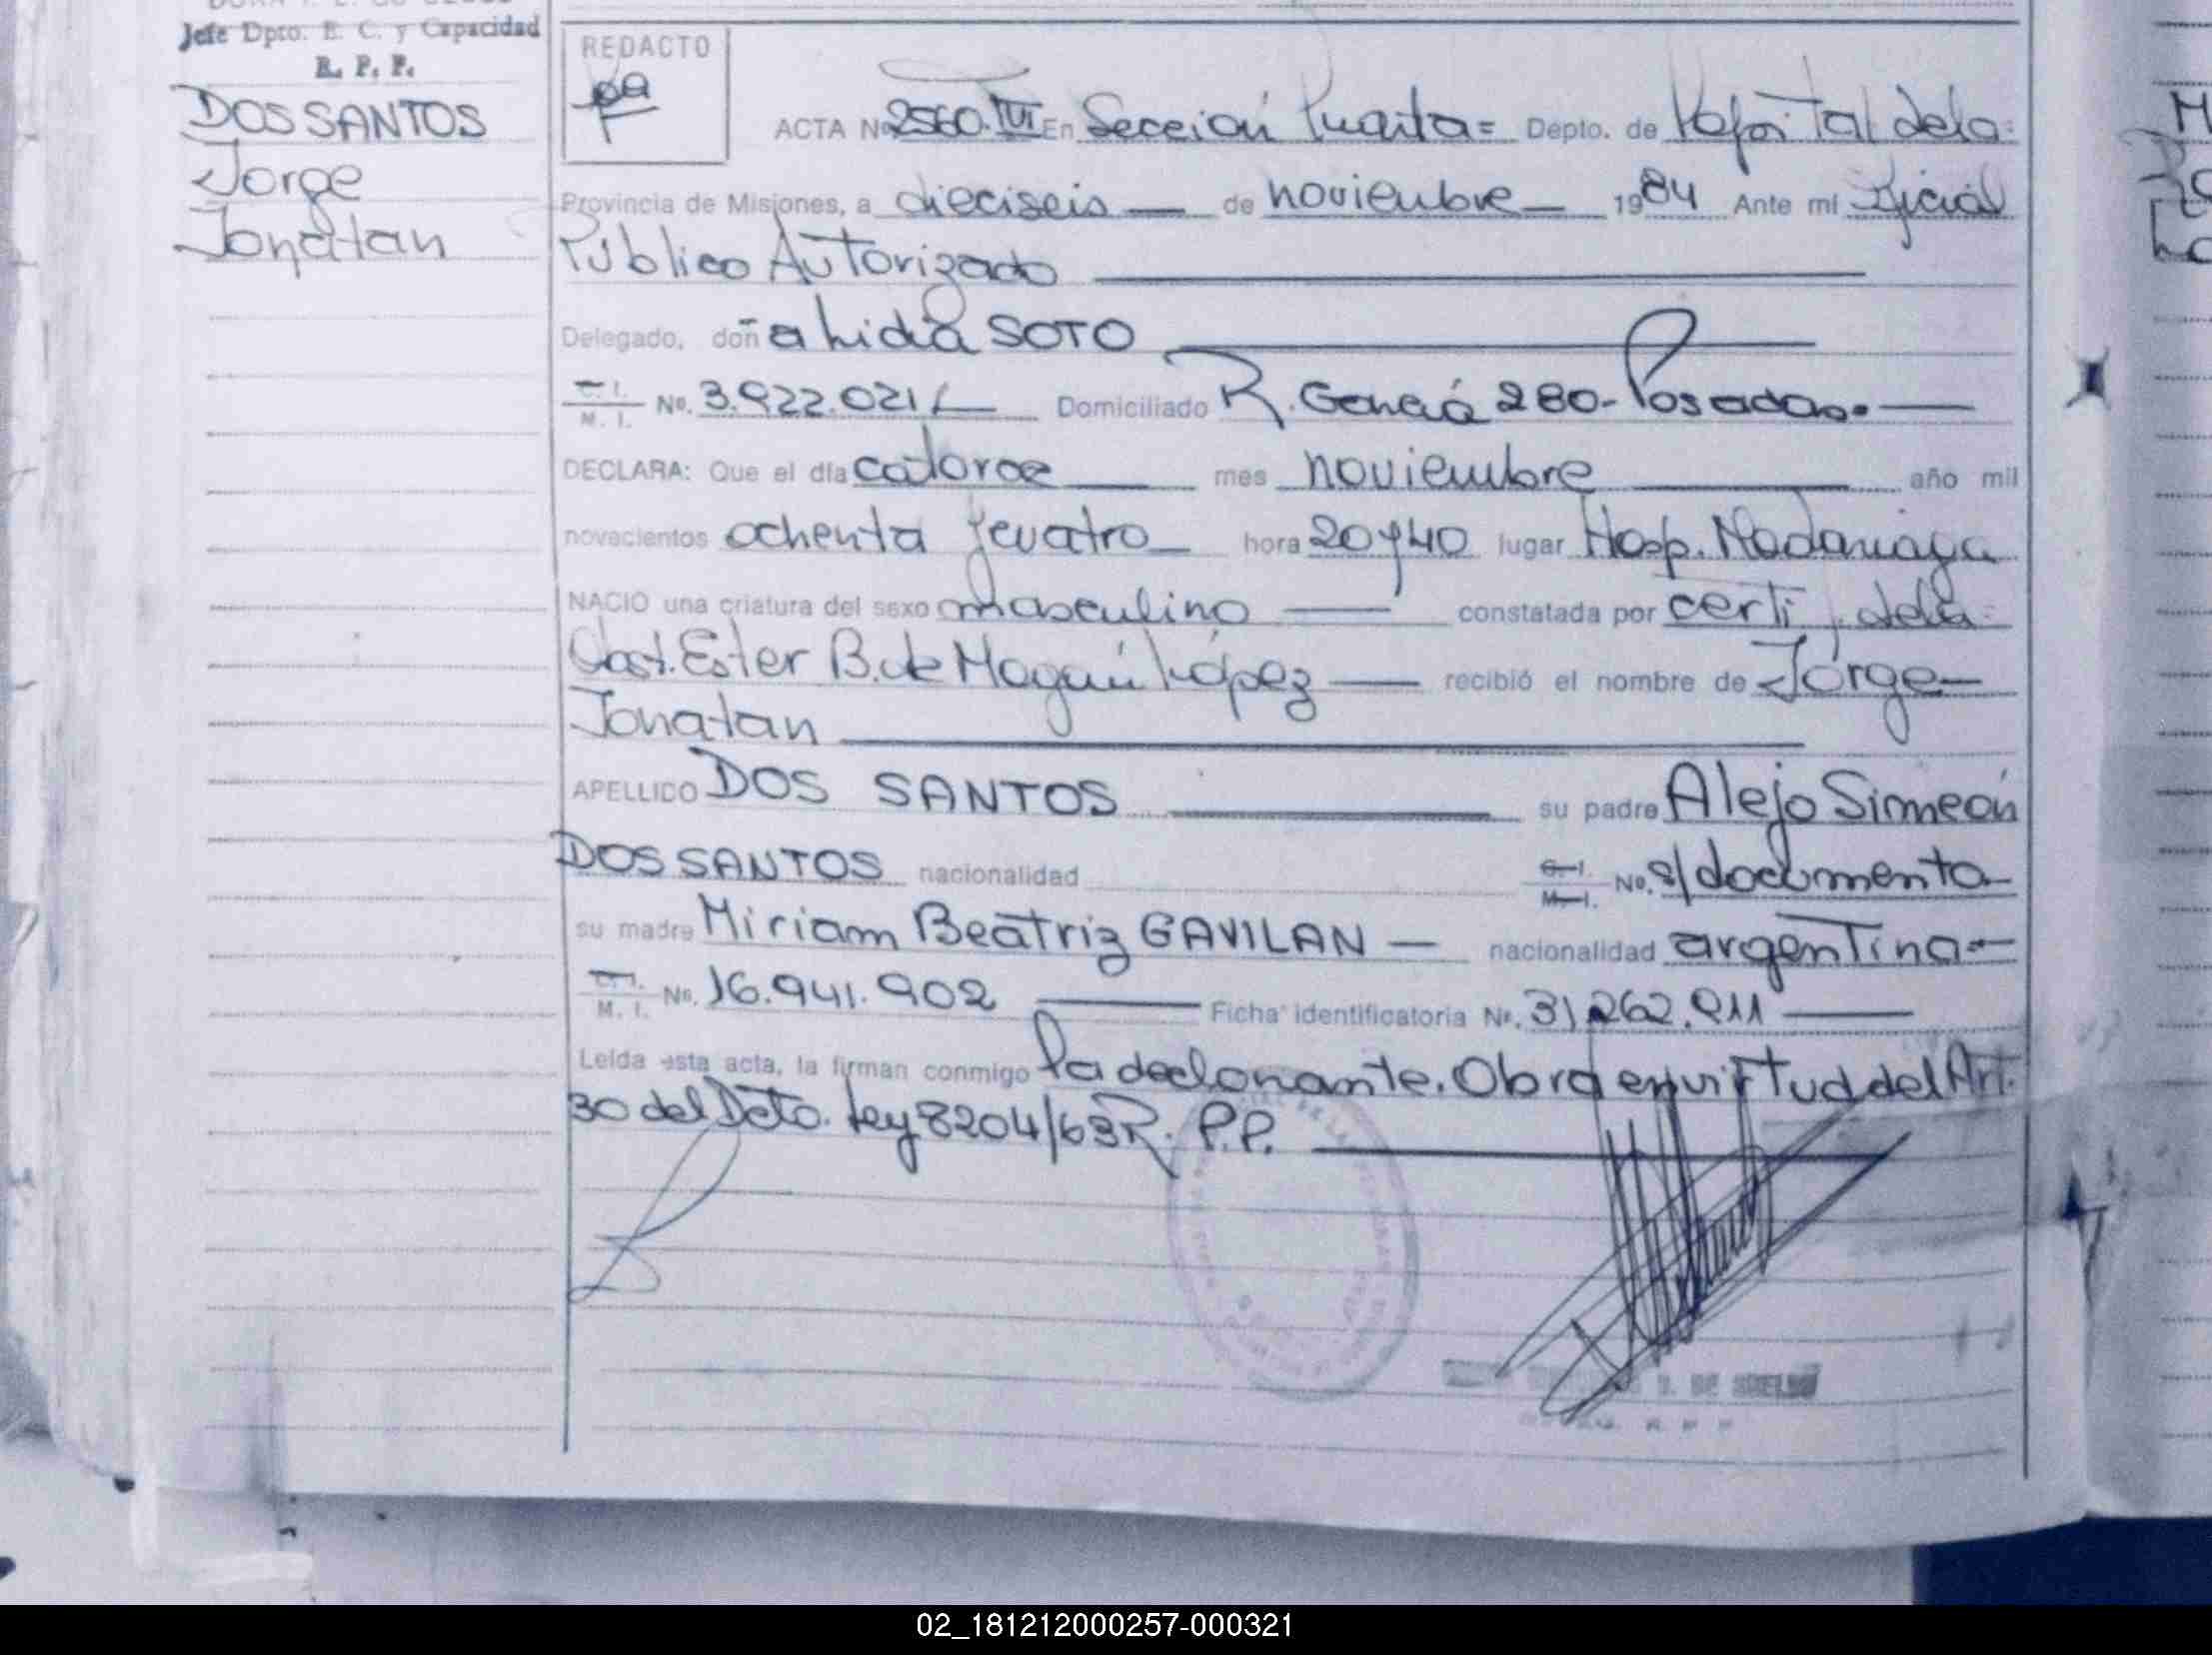 Jefe Dpto. E. C. y Capacidad
R. P. P.
DOS SANTOS
Jorge
Jonatan
REDACTO
ACTA Nº 2560. TVI En Sección Cuarta= Depto. de Capital de la=
Provincia de Misiones, a dieciseis — de noviembre — 1984 Ante mi Oficial
Público Autorizado
Delegado, doñ a Lidia SOTO
C. I. M. I. No. 3.922.021/ Domiciliado R. García 280- Posadas.-
DECLARA: Que el día catorce mes noviembre año mil
novecientos ochenta y cuatro hora 20 y 40 lugar Hosp. Madariaga
NACIO una criatura del sexo masculino constatada por certi, de la=
Obst. Ester B. de Magui López recibió el nombre de Jorge
Jonatan
APELLIDO DOS SANTOS su padre Alejo Simeón
DOS SANTOS nacionalidad C. I. M. I. No. s/documento
su madre Miriam Beatriz GAVILAN — nacionalidad argentina-
C. I. M. I. No. 16.941.902 Ficha identificatoria Nº. 31.262.911
Leída esta acta, la firman conmigo la declarante. Obra en virtud del Art.
30 del Dcto. Ley 8204/63 R. P.P.
02_181212000257-000321